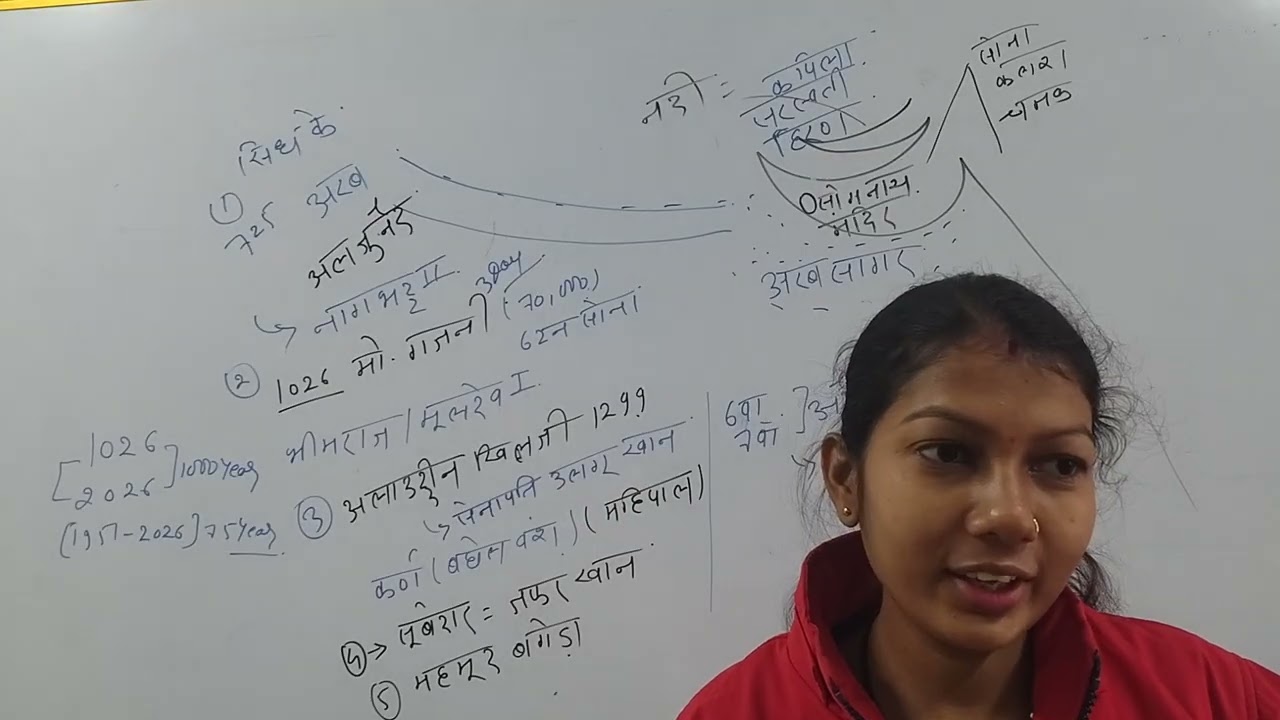 नदी = कपिला
सरस्वती
हिरण
सोना
कलश
चमक
सोमनाथ
मंदिर
अरब सागर
सिंध के
① 725 अरब
अल जुनैद
↳ नागभट्ट II
② 1026 मो. गजनी (70,000)
6टन सोना
भीमराज / मूलदेव I
[1026
2026] 1000 Year
(1951-2026] 75 Year
③ अलाउद्दीन खिलजी 1299
↳ सेनापति उलगू खान
कर्ण (बघेल वंश) (महिपाल)
④→ सूबेदार = जफर खान
⑤ महमूद बगेड़ा
6वां
7वां